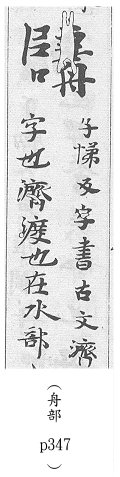 子悌反字書古文濟
字也濟渡也在水部
（舟部 p347）